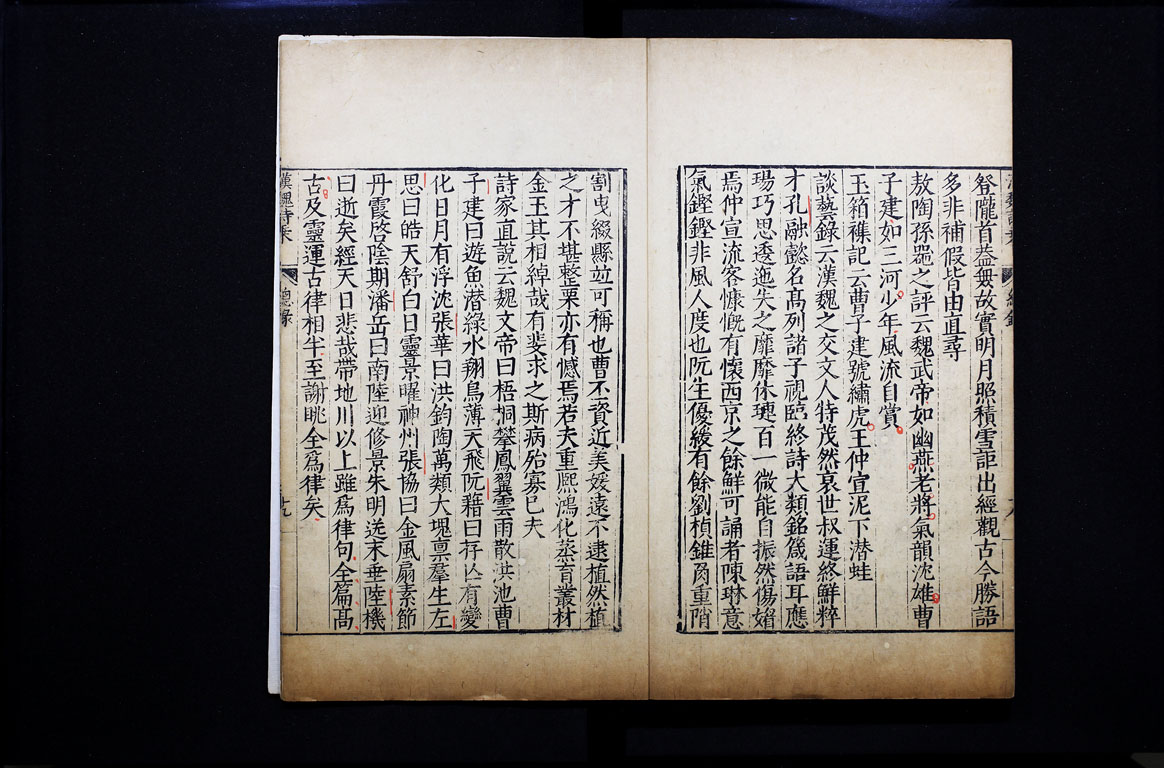 登隴首羗無故實明月照積雪詎出經觀古今勝語
多非補假皆由直尋
敖陶孫噐之評云魏武帝如幽燕老將氣韻沈雄曹
子建如三河少年風流自賞
玉箱襍記云曹子建號繡虎王仲宣泥下潛蛙
談藝錄云漢魏之交文人特茂然衰世叔運終鮮粹
才孔融懿名髙列諸子視臨終詩大類銘箴語耳應
瑒巧思逶迤失之靡靡休璉百一微能自振然傷媢
焉仲宣流客慷慨有懷西京之餘鮮可誦者陳琳意
氣鏗鏗非風人度也阮生優緩有餘劉楨錐角重陗
割曳綴縣並可稱也曹丕資近美媛遠不逮植然植
之才不堪整栗亦有憾焉若夫重熈鴻化蒸育叢材
金玉其相綽哉有斐求之斯病殆寡已夫
詩家直說云魏文帝曰梧桐攀鳳翼雲雨散洪池曹
子建曰遊魚潛綠水翔鳥薄天飛阮藉曰存亾有變
化日月有浮沈張華曰洪鈞陶萬類大塊稟羣生左
思曰皓天舒白日靈景曜神州張協曰金風扇素節
丹霞啓陰期潘岳曰南陸迎修景朱明送末垂陸機
曰逝矣經天日悲哉帶地川以上雖爲律句全篇髙
古及靈運古律相半至謝眺全爲律矣
漢魏詩乘 總錄 十九